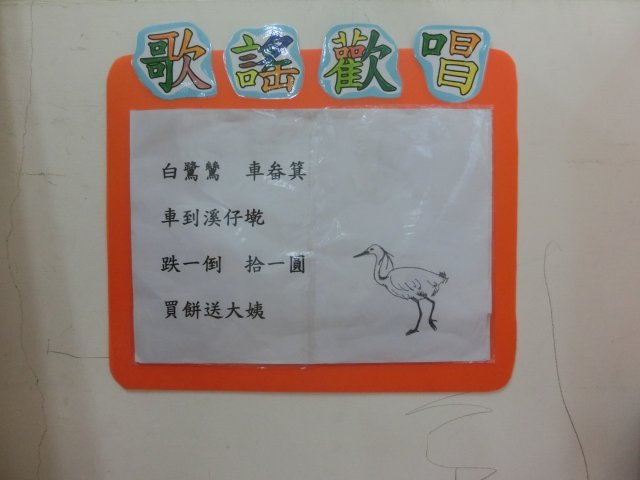 歌謠歡唱
白鷺鶯 車畚箕
車到溪仔墘
跌一倒 拾一圓
買餅送大姨